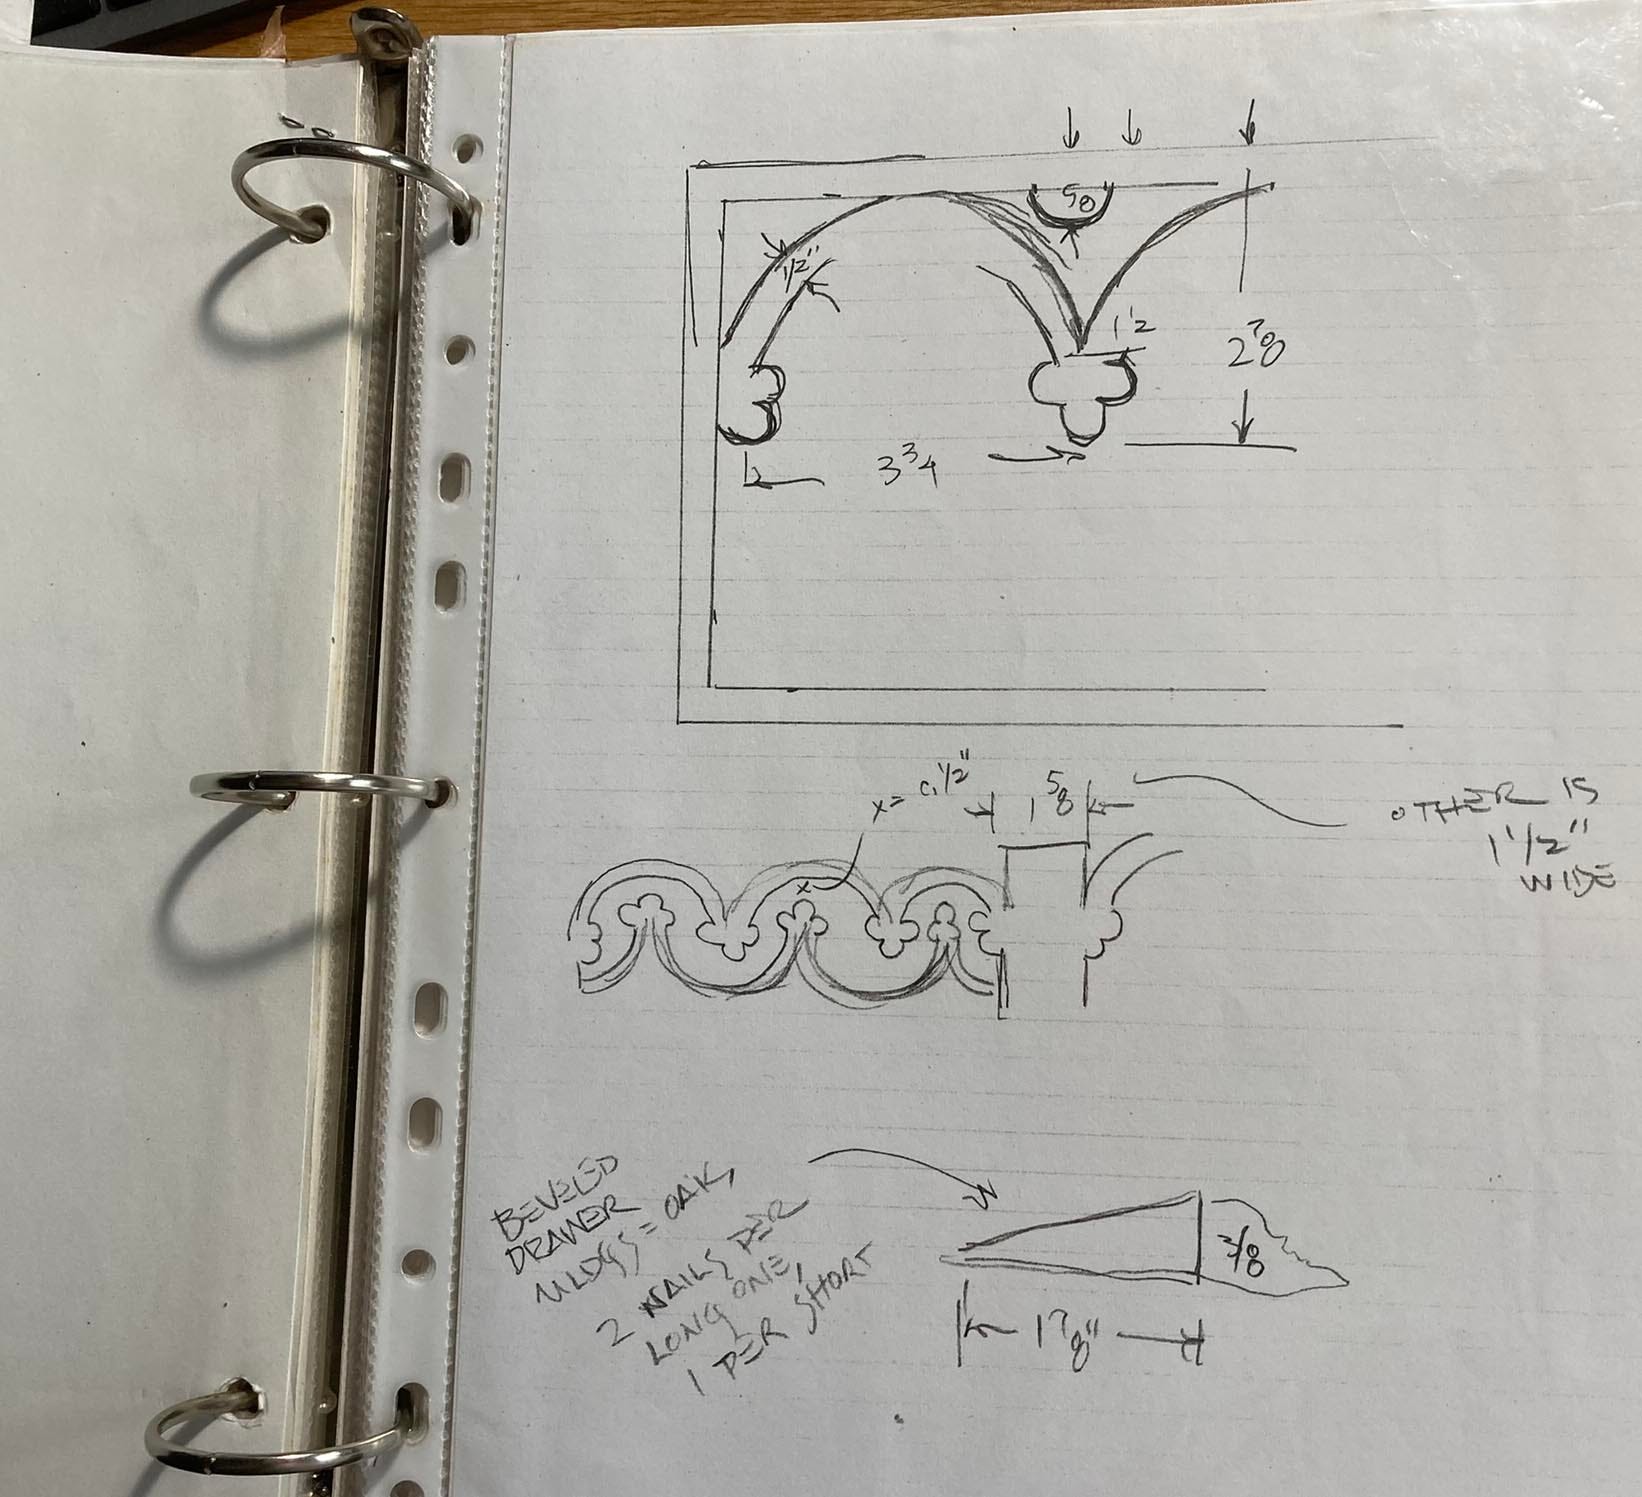 5/8
1/2"
1 1/2
2 7/8
3 3/4
x = c. 1/2"
1 5/8
OTHER IS
1 1/2"
WIDE
x
BEVELED
DRAWER
MLDGS = OAK,
2 NAILS PER
LONG ONE,
1 PER SHORT
3/8
1 7/8"